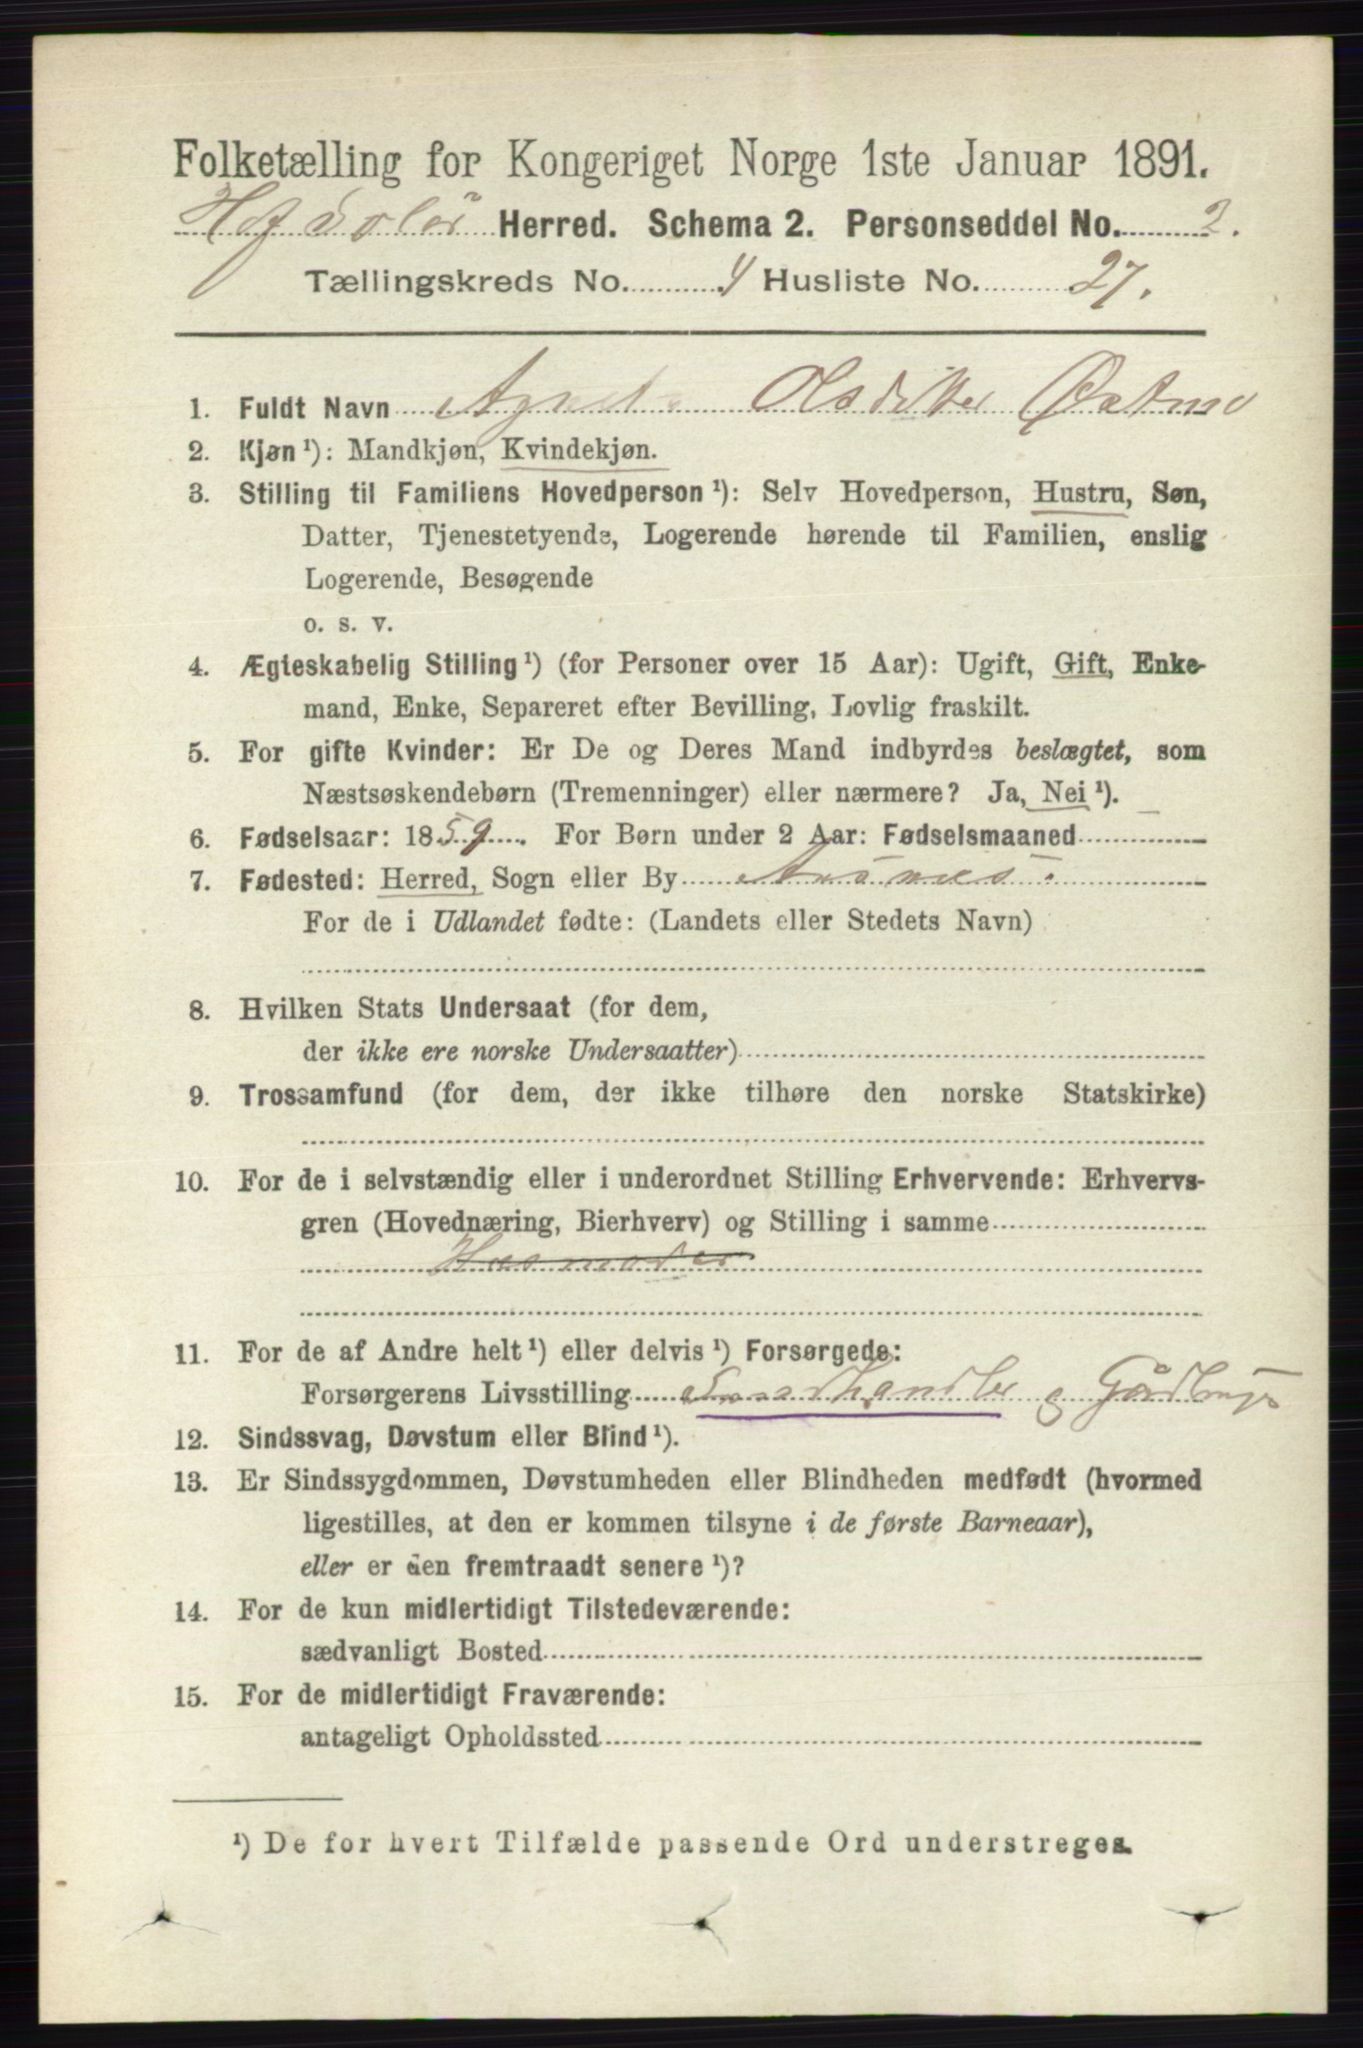 Folketælling for Kongeriget Norge 1ste Januar 1891.
Hof Solør Herred. Schema 2. Personseddel No. 2.
Tællingskreds No. 4 Husliste No. 27.
1. Fuldt Navn Olsdatter Østmo
2. Kjøn ¹): Mandkjøn, Kvindekjøn.
3. Stilling til Familiens Hovedperson ¹): Selv Hovedperson, Hustru, Søn,
Datter, Tjenestetyende, Logerende hørende til Familien, enslig
Logerende, Besøgende
o. s. v.
4. Ægteskabelig Stilling ¹) (for Personer over 15 Aar): Ugift, Gift, Enke-
mand, Enke, Separeret efter Bevilling, Lovlig fraskilt.
5. For gifte Kvinder: Er De og Deres Mand indbyrdes beslægtet, som
Næstsøskendebørn (Tremenninger) eller nærmere? Ja, Nei ¹).
6. Fødselsaar: 1859. For Børn under 2 Aar: Fødselsmaaned
7. Fødested: Herred, Sogn eller By Aasnes.
For de i Udlandet fødte: (Landets eller Stedets Navn)
8. Hvilken Stats Undersaat (for dem,
der ikke ere norske Undersaatter)
9. Trossamfund (for dem, der ikke tilhøre den norske Statskirke)
10. For de i selvstændig eller i underordnet Stilling Erhvervende: Erhvervs-
gren (Hovednæring, Bierhverv) og Stilling i samme
Husmoder
11. For de af Andre helt ¹) eller delvis ¹) Forsørgede:
Forsørgerens Livsstilling Landhandler og Gårdbruger
12. Sindssvag, Døvstum eller Blind ¹).
13. Er Sindssygdommen, Døvstumheden eller Blindheden medfødt (hvormed
ligestilles, at den er kommen tilsyne i de første Barneaar),
eller er den fremtraadt senere ¹)?
14. For de kun midlertidigt Tilstedeværende:
sædvanligt Bosted
15. For de midlertidigt Fraværende:
antageligt Opholdssted
¹) De for hvert Tilfælde passende Ord understreges.